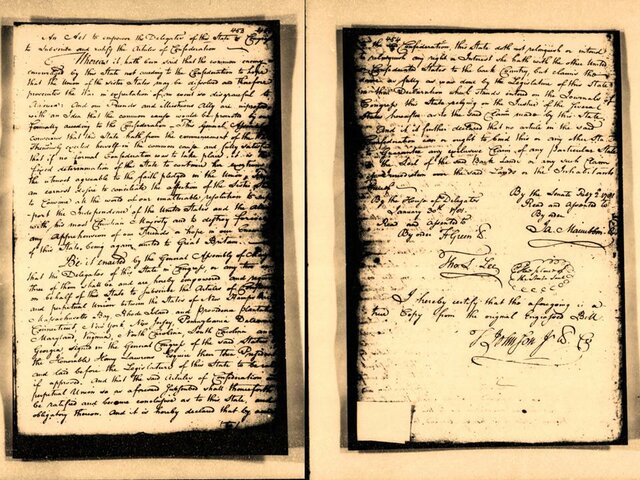 453
An Act to empower the Delegates of this State in Congress
to Subscribe and ratify the Articles of Confederation
Whereas it hath been said that the common enemy
encouraged by this State not acceding to the Confederation to hope
that the Union of the Sister States may be dissolved and therefore
prosecutes the War in expectation of an event so disgraceful to
America: And our Friends and illustrious Ally are impressed
with an Idea that the common cause would be promoted by our
formally acceding to the Confederation. The General Assembly
conscious that this State hath from the commencement of the War
Strenuously exerted herself in the common cause and fully satisfied
that if no formal Confederation was to take place, it is the
fixed determination of this State to continue her exertions
the utmost agreeable to the faith pledged in the Union; from
an earnest desire to conciliate the affection of the Sister States
to Convince all the world of our unalterable resolution to
support the Independence of the United States and the
with his most Christian Majesty and to destroy forever
any Apprehension of our Friends or hope in our Enemies
of this State being again united to Great Britain.
Be it enacted by the General Assembly of
that the Delegates of this State in Congress, or any two or
three of them shall be and are hereby impowered and required
on behalf of this State to subscribe the Articles of Confederation
and perpetual Union between the States of New Hampshire
Massachusetts Bay, Rhode Island and providence plantations
Connecticut, New York New Jersey, Pennsylvania Delaware
Maryland, Virginia, North Carolina, South Carolina and
Georgia signed in the General Congress of the said States
the Honorable Henry Laurens Esquire then their President
and laid before the Legislatures of this State to be
if approved. And that the said Articles of Confederation
perpetual Union so as aforesaid shall thenceforth
be ratified and become conclusive as to this State, and
obligatory thereon. And it is hereby declared that by
454
the Confederation, this State doth not relinquish or intend
to relinquish any right or Interest she hath with the other United
or Confederated States to the back Country, but claims the
same as fully as was done by the Legislature of this State
in their Declaration which stands entered on the Journals of
Congress this State relying on the Justice of the several
States hereafter as to the said Claim made by this State
And it is further declared that no article in the said
Confederation can or ought to bind this or any other State
to Guarantee any exclusive Claim of any particular State
to the Soil of the said Back Lands or any such Claim
of Jurisdiction over the said Lands or the Inhabitants
thereof
By the House of Delegates
January 1781
Read and assented to
By order F Green Ck
By the Senate Feby 2d 1781
Read and assented to
By order
Ja. Maccubbin
Tho S. Lee
The place of
the State Seal
I hereby certify that the aforegoing is a
true Copy from the original Engrossed Bill
T Johnson Jr